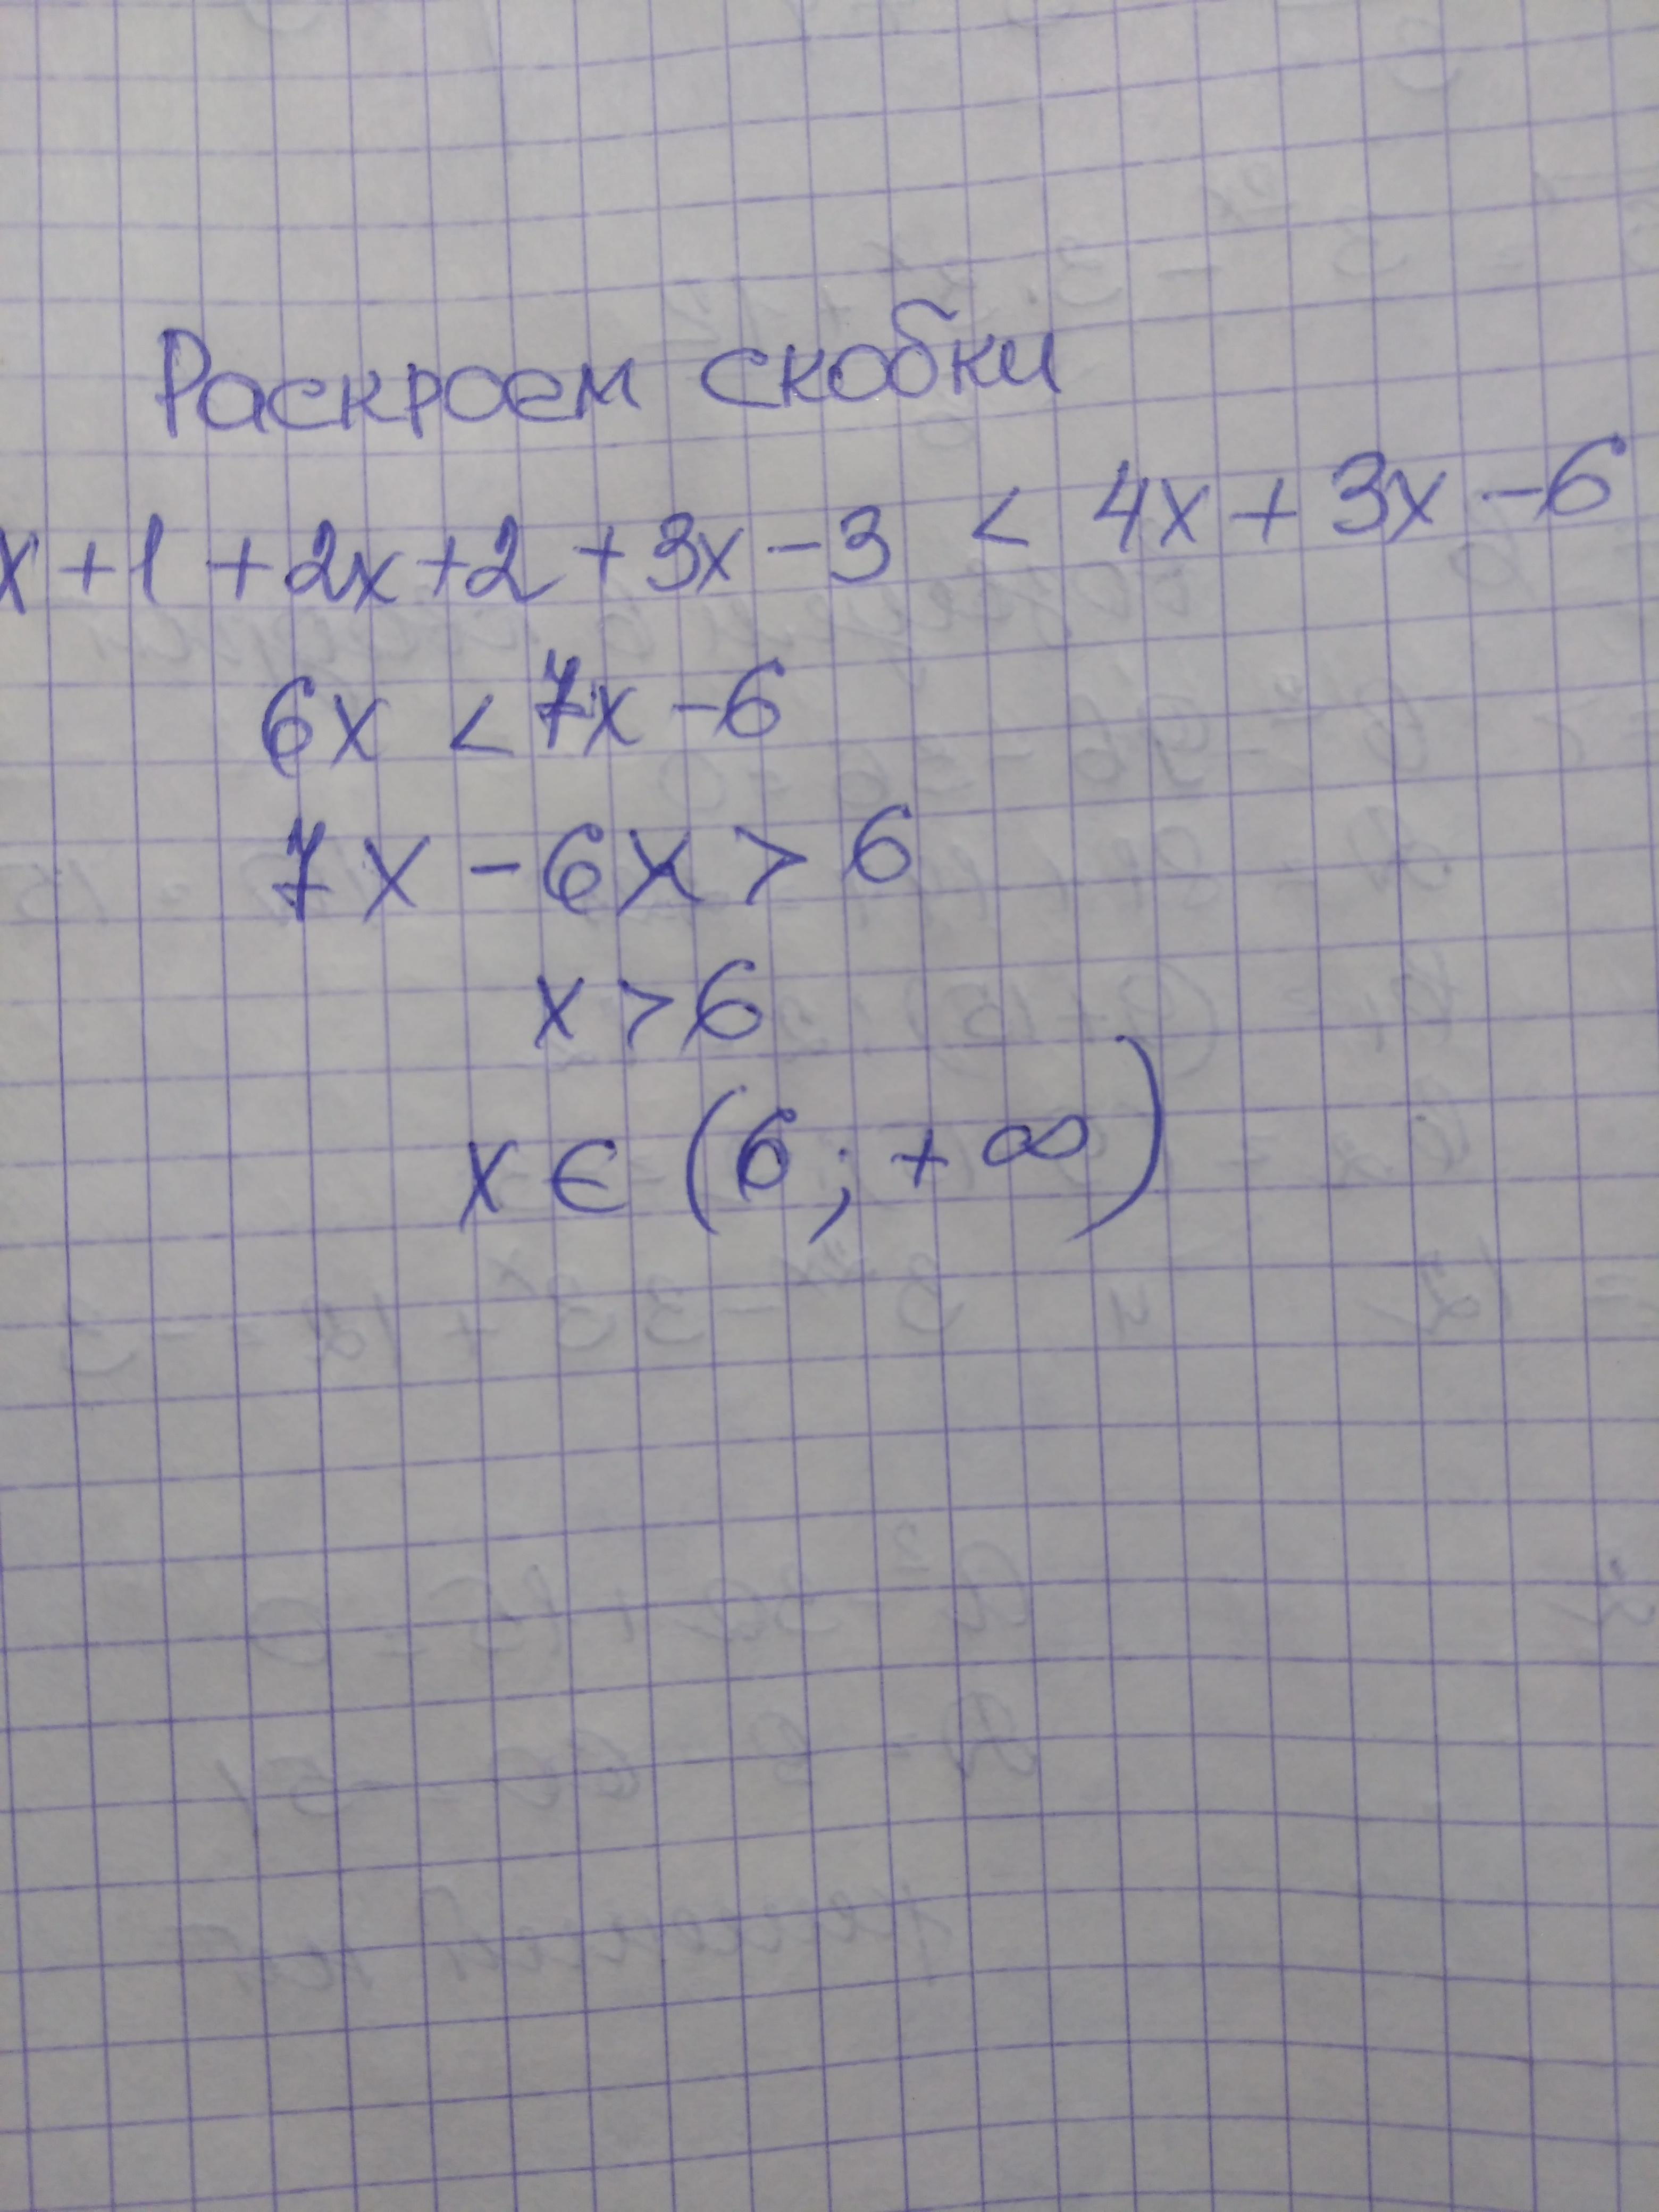 Раскроем скобки
x + 1 + 2x + 2 + 3x - 3 < 4x + 3x - 6
6x < 7x - 6
7x - 6x > 6
x > 6
x ∈ (6; +∞)